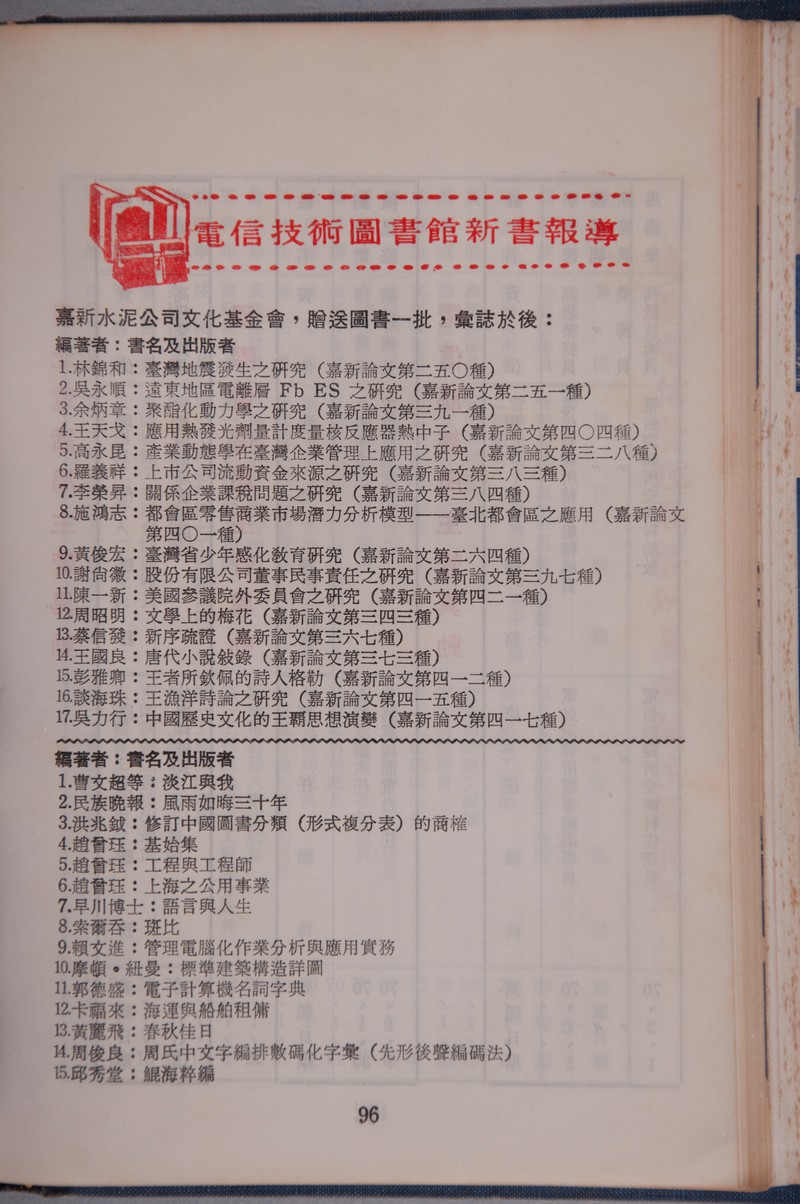 電信技術圖書館新書報導
嘉新水泥公司文化基金會，贈送圖書一批，彙誌於後：
編著者：書名及出版者
1.林錦和：臺灣地震發生之研究（嘉新論文第二五〇種）
2.吳永順：遠東地區電離層 Fb ES 之研究（嘉新論文第二五一種）
3.余炳章：聚酯化動力學之研究（嘉新論文第三九一種）
4.王天戈：應用熱發光劑量計度量核反應器熱中子（嘉新論文第四〇四種）
5.高永昆：產業動態學在臺灣企業管理上應用之研究（嘉新論文第三二八種）
6.羅義祥：上市公司流動資金來源之研究（嘉新論文第三八三種）
7.李榮昇：關係企業課稅問題之研究（嘉新論文第三八四種）
8.施鴻志：都會區零售商業市場潛力分析模型——臺北都會區之應用（嘉新論文
第四〇一種）
9.黃俊宏：臺灣省少年感化教育研究（嘉新論文第二六四種）
10.謝尙徽：股份有限公司董事民事責任之研究（嘉新論文第三九七種）
11.陳一新：美國參議院外委員會之研究（嘉新論文第四二一種）
12.周昭明：文學上的梅花（嘉新論文第三四三種）
13.蔡信發：新序疏證（嘉新論文第三六七種）
14.王國良：唐代小說敍錄（嘉新論文第三七三種）
15.彭雅卿：王者所欽佩的詩人格勒（嘉新論文第四一二種）
16.談海珠：王漁洋詩論之研究（嘉新論文第四一五種）
17.吳力行：中國歷史文化的王霸思想演變（嘉新論文第四一七種）
編著者：書名及出版者
1.曹文超等：淡江與我
2.民族晚報：風雨如晦三十年
3.洪兆鉞：修訂中國圖書分類（形式複分表）的商榷
4.趙曾珏：基始集
5.趙曾珏：工程與工程師
6.趙曾珏：上海之公用事業
7.早川博士：語言與人生
8.索爾吞：斑比
9.賴文進：管理電腦化作業分析與應用實務
10.摩頓•紐曼：標準建築構造詳圖
11.郭德盛：電子計算機名詞字典
12.卡福來：海運與船舶租傭
13.黃麗飛：春秋佳日
14.周俊良：周氏中文字編排數碼化字彙（先形後聲編碼法）
15.邱秀堂：鯤海粹編
96